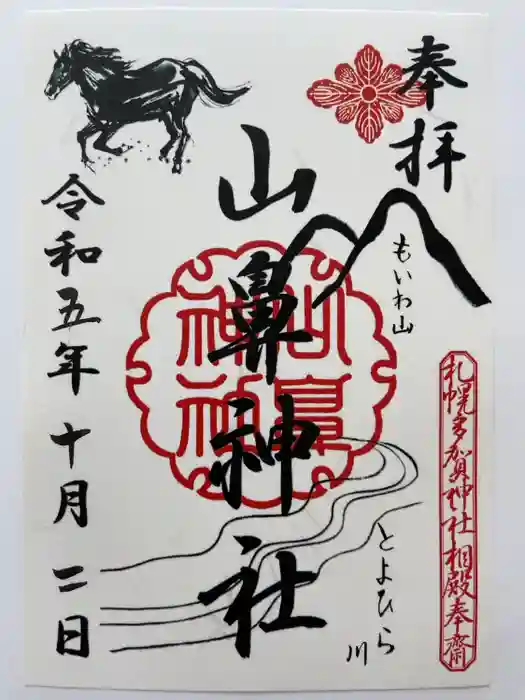 奉拝
もいわ山
札幌多賀神社相殿奉齋
山鼻神社
山鼻神社
とよひら川
令和五年十月二日